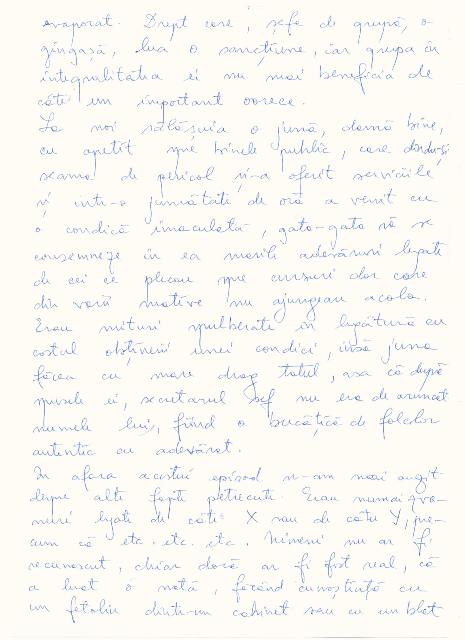 evaporat. Drept care, șefa de grupă, o
gingașă, lua o sancțiune, iar grupa în
integralitatea ei nu mai beneficia de
câte un important oarece.
La noi sălășuia o jună, damă bine,
cu apetit spre binele public, care dându-și
seama de pericol și-a oferit serviciile
și într-o jumătate de oră a venit cu
o condică imaculată, gata-gata să se
consemneze în ea marile adevăruri legate
de cei ce plecau spre cursuri dar care
din varii motive nu ajungeau acolo.
Erau mituri spulberate în legătură cu
costul obținerii unei condici, însă juna
făcea cu mare drag totul, așa că după
spusele ei, secretarul șef nu era de aruncat
numele lui, fiind o bucățică de folclor
autentic cu adevărat.
În afara acestui episod n-am mai auzit
despre alte fapte petrecute. Erau numai zvo-
nuri legate de câte X sau de câte Y, pre-
cum că etc. etc. etc. Nimeni nu ar fi
recunoscut, chiar dacă ar fi fost real, că
a luat o notă, făcând cunoștință cu
un fotoliu dintr-un cabinet sau cu un blat